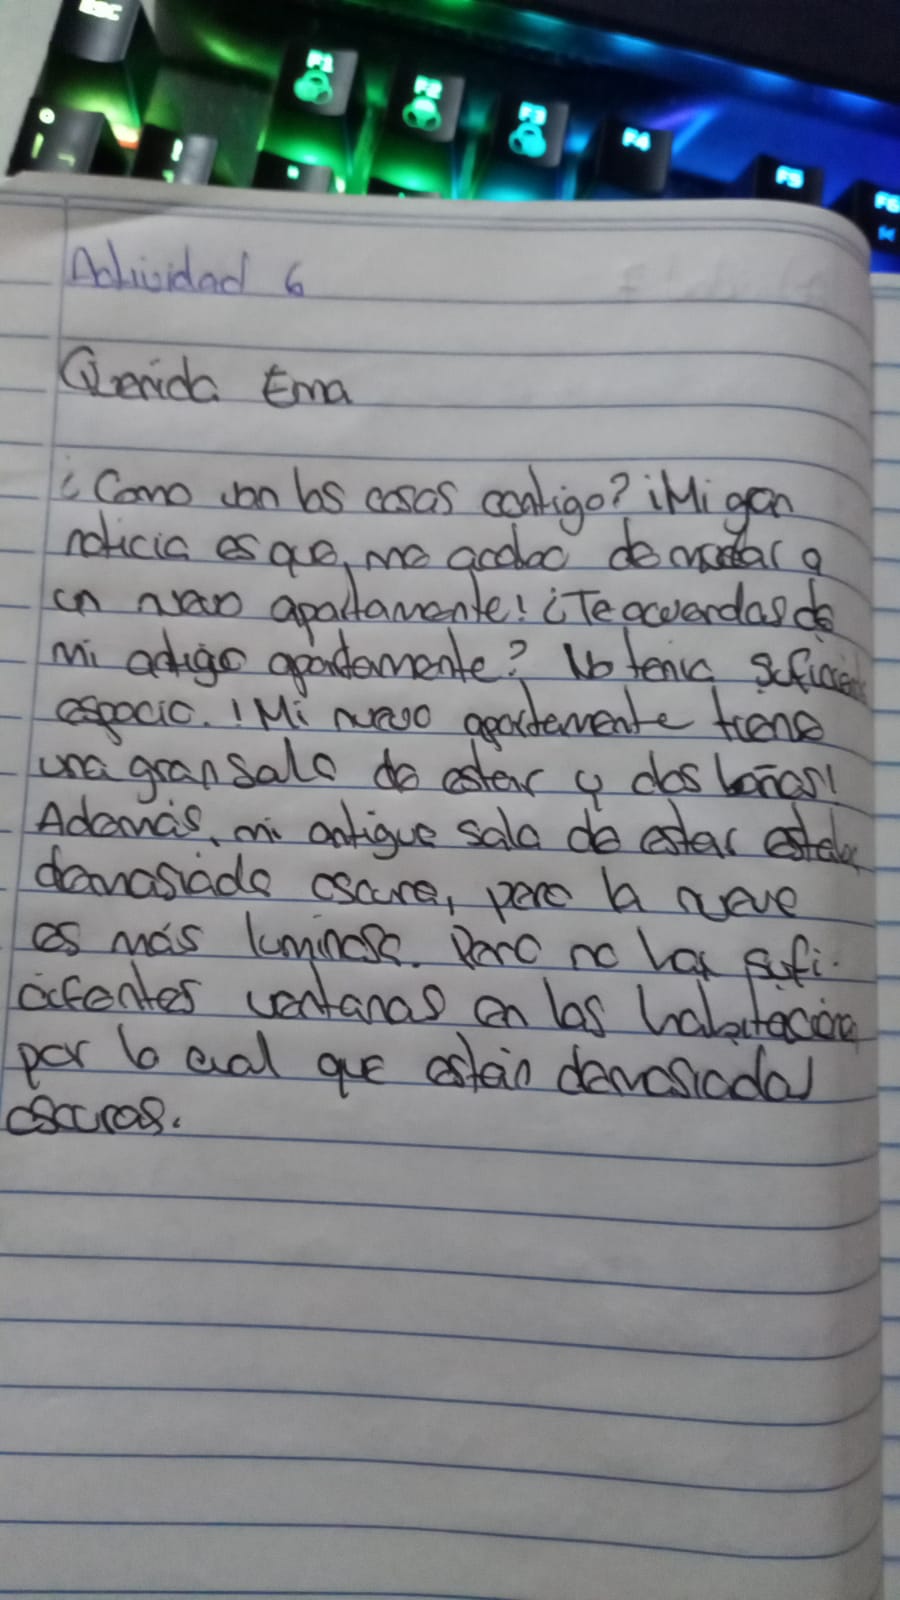 ESC
F1
F2
F3
F4
F5
F6
Actividad 6
Querida Ema
¿Como van las cosas contigo? ¡Mi gran
noticia es que, me acabo de mudar a
un nuevo apartamente! ¿Te acuerdas de
mi antigo apartamente? No tenia suficiente
espacio. ! Mi nuevo apartamente tiene
una gran sala de estar y dos baños!
Además, mi antigue sala de estar estaba
demasiado oscura, pero la nueve
es más luminosa. Pero no hay sufi-
cientes ventanas en las habitacione
por lo cual que están demasiadas
oscuras.